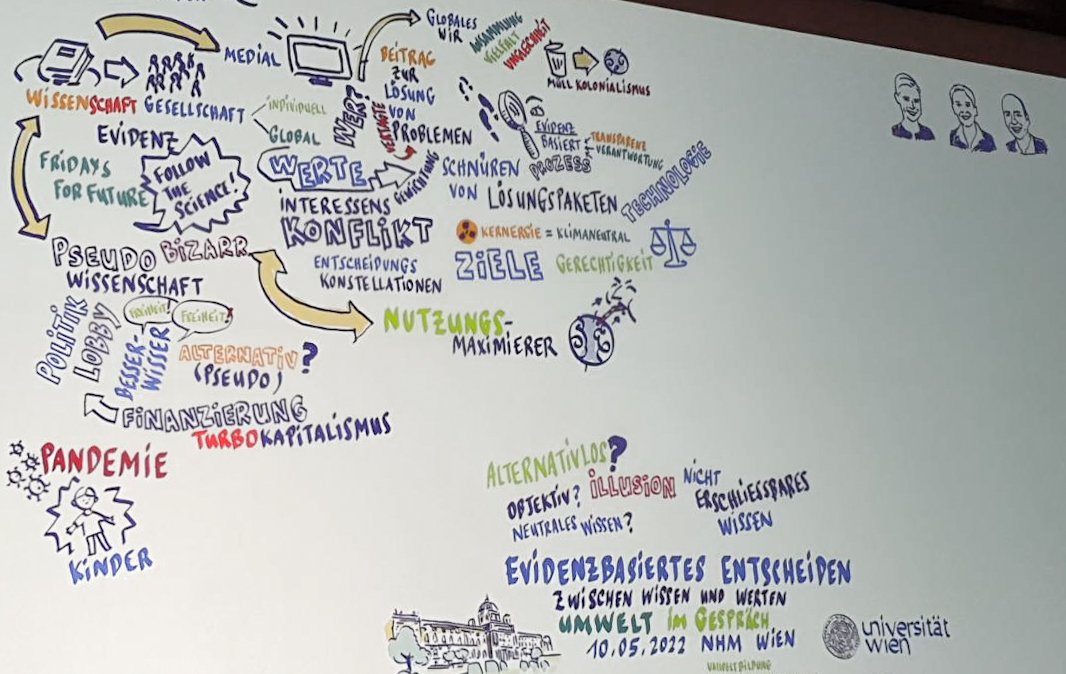 MEDIAL
GLOBALES
WIR
ANSAMMLUNG
VIELFALT
UNGLEICHHEIT
MÜLL KOLONIALISMUS
BEITRAG
ZUR
LÖSUNG
VON
PROBLEMEN
WERT
VERTAGTE
WISSENSCHAFT GESELLSCHAFT
INDIVIDUELL
GLOBAL
EVIDENZ
FRIDAYS
FOR FUTURE
FOLLOW
THE
SCIENCE!
WERTE
GEWICHTUNG
INTERESSENS
KONFLIKT
ENTSCHEIDUNGS
KONSTELLATIONEN
EVIDENZ
BASIERT
PROZESS
TRANSPARENZ
VERANTWORTUNG
SCHNÜREN
VON LÖSUNGSPAKETEN
TECHNOLOGIE
KERNERGIE = KLIMANEUTRAL
ZIELE GERECHTIGKEIT
PSEUDO BIZARR
WISSENSCHAFT
NUTZUNGS-
MAXIMIERER
POLITIK
LOBBY
FREIHEIT!
FREIHEIT!
BESSER-
WISSER
ALTERNATIV?
(PSEUDO)
FINANZIERUNG
TURBOKAPITALISMUS
PANDEMIE
KINDER
ALTERNATIVLOS?
OBJEKTIV? ILLUSION
NEUTRALES WISSEN?
NICHT
ERSCHLIESSBARES
WISSEN
EVIDENZBASIERTES ENTSCHEIDEN
ZWISCHEN WISSEN UND WERTEN
UMWELT IM GESPRÄCH
10.05.2022 NHM WIEN
universität
wien